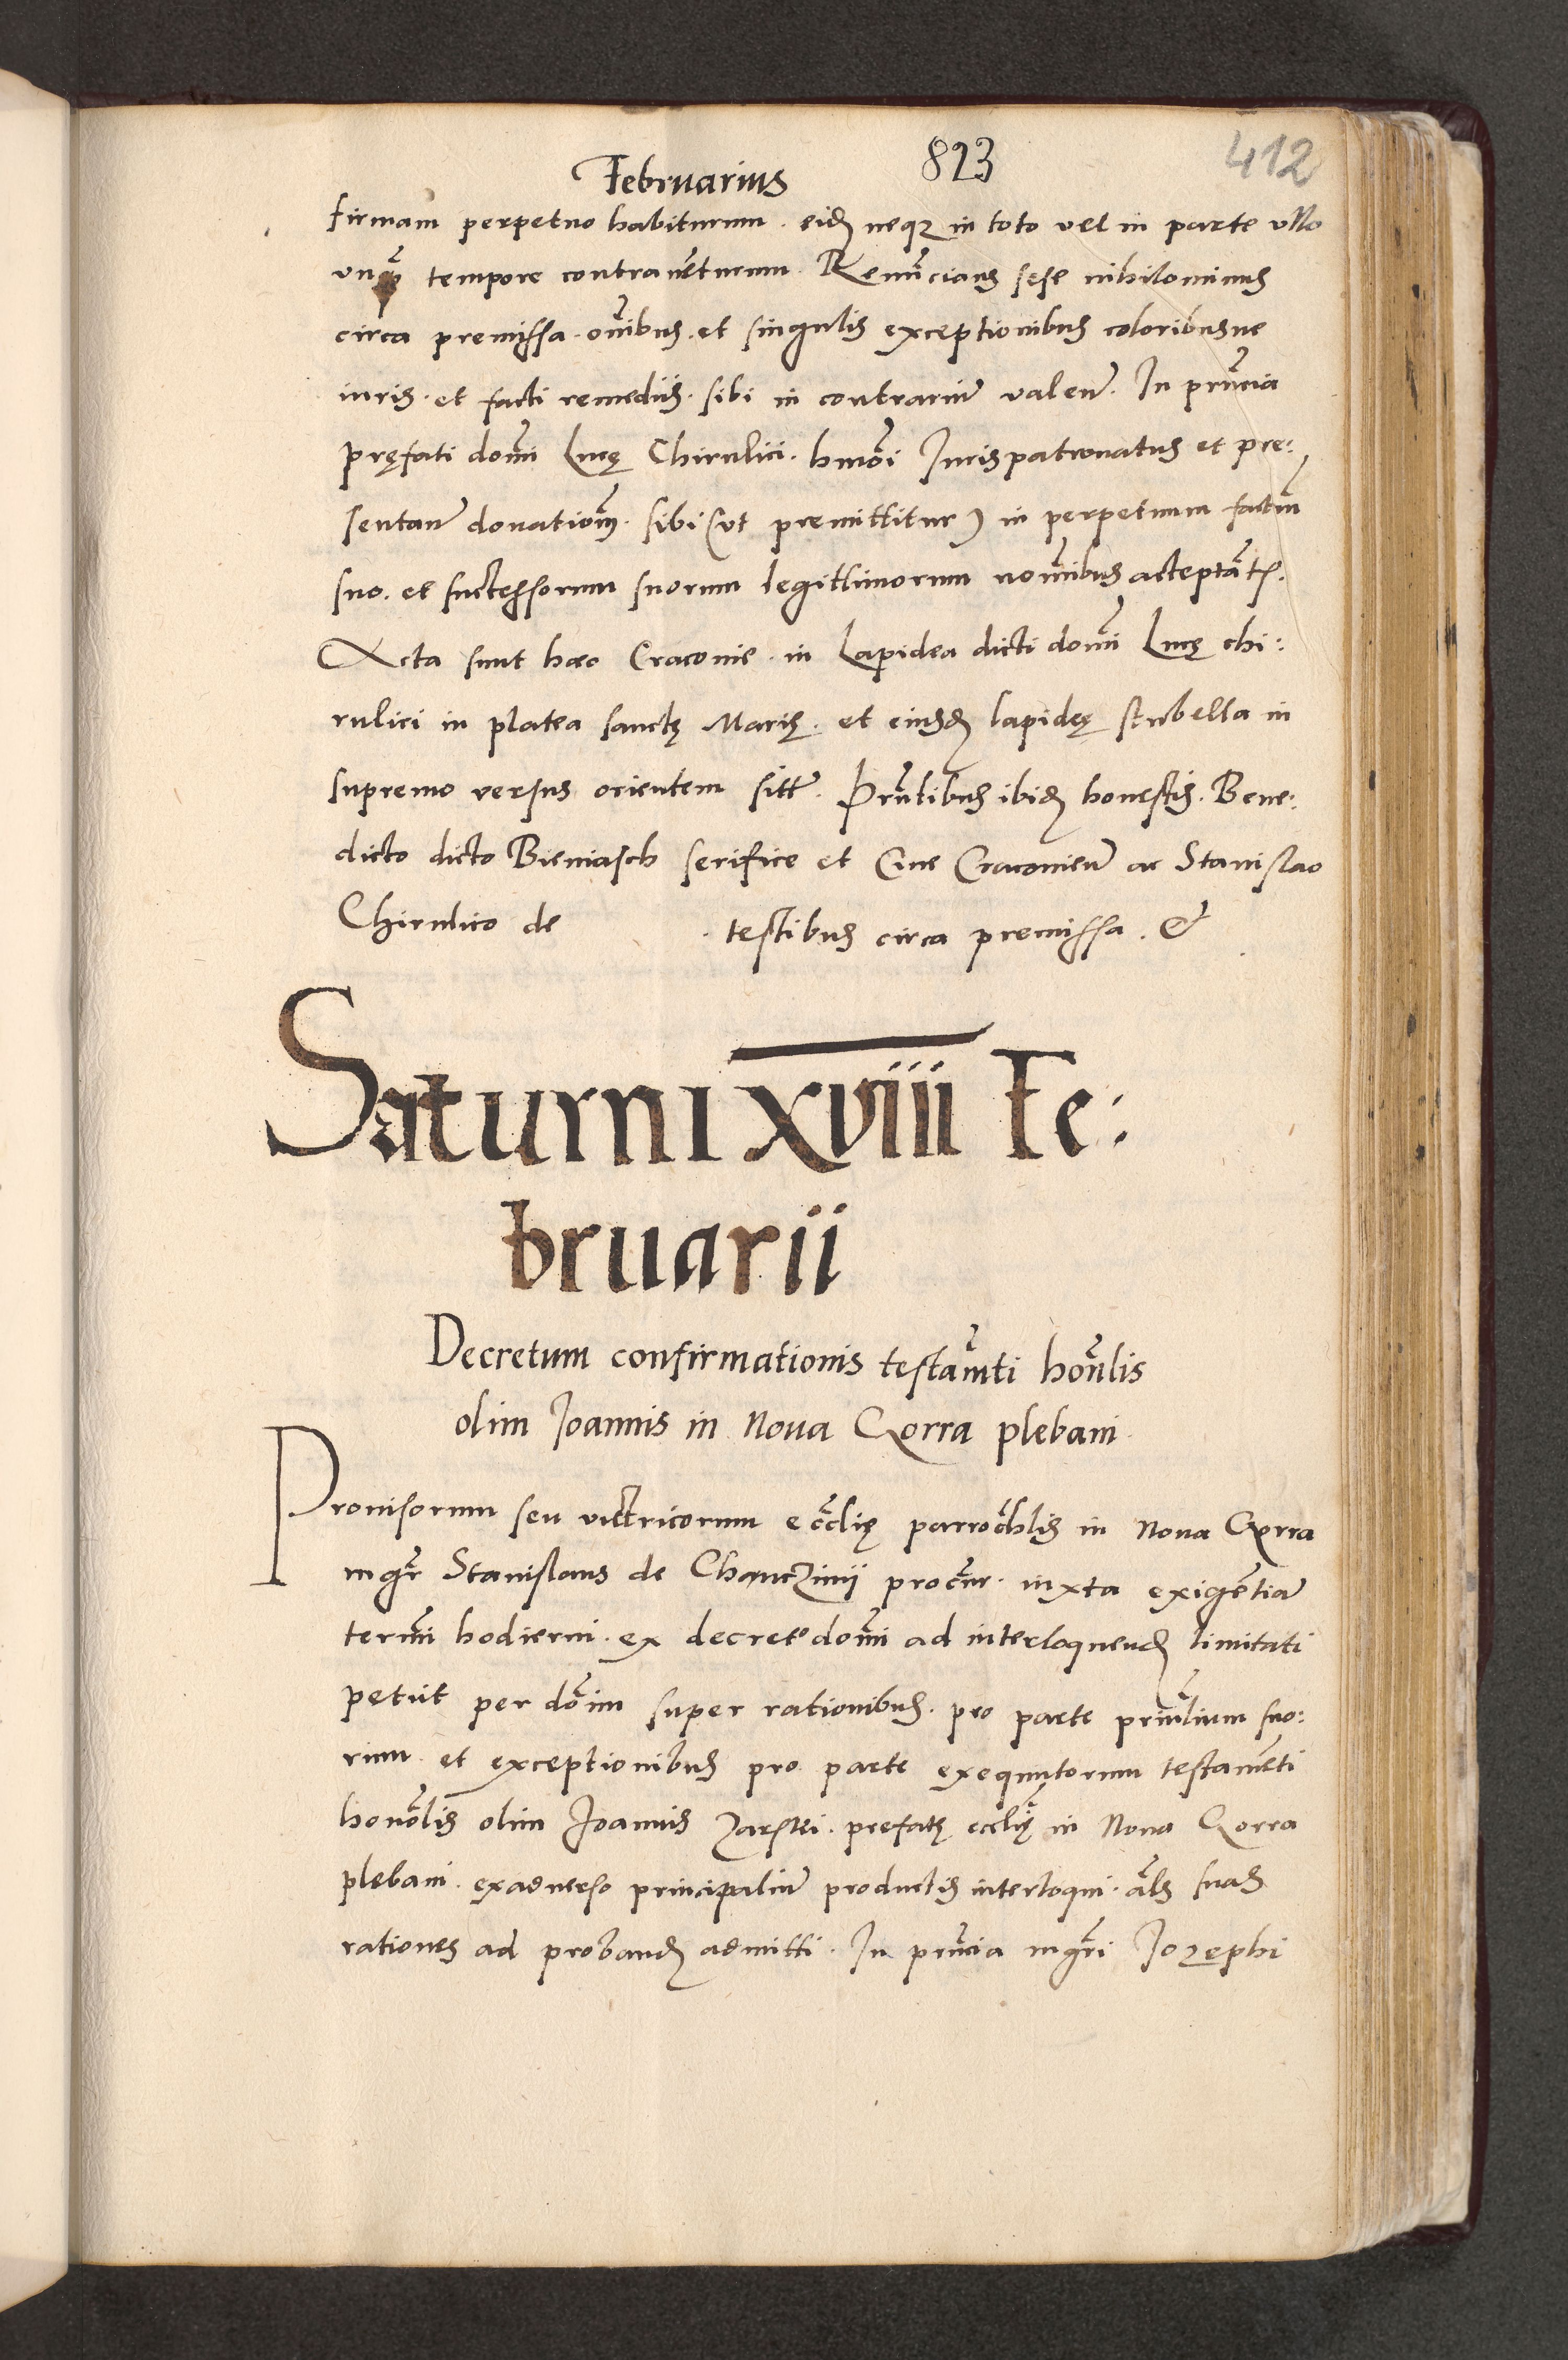 Februarius 823 412
firmam perpetuo habiturum. eid neqz in toto vel in parte ullo
unq̃ tempore contraventurum. Renũcians sese nihilominus
circa premissa. oĩbus. et singulis exceptionibus coloribusve
iuris. et facti remediis. sibi in contrariũ valeñ. In pñcia
pręfati domĩ Lucę Chirulici. hmõi Jurispatronatus et pre:
sentanť donationẽ. sibi (ut premittitur) in perpetuum factam
suo. et successorum suorum legittimorum nomĩbus acceptãtis.
Acta sunt hæc Cracovie. in Lapidea dicti domĩ Lucę chi:
rulici in platea sanctę Marię. et eiusd lapideę stubella in
supremo versus orientem sitť. Pñtibus ibid honestis. Bene:
dicto dicto Bieniasch serifice et Cive Cracovieñ ac Stanislao
Chirulico de . testibus circa premissa. &
Saturni xviiii Fe:
bruarii
Decretum confirmationis testamẽti honõlis
olim Joannis in Nova Gorra plebani
Provisorum seu victricorum ecclię parrochĩlis in Nova Gorra
mgr̃ Stanislaus de Chanczinij procur̃. iuxta exigentiã
termĩ hodierni. ex decreto domĩ ad interloquend limitati
petiit per dõim super rationibus. pro parte principalium suo:
rum. et exceptionibus pro parte exequutorum testamẽti
honõlis olim Joannis Zarski. prefatę ecclię in Nova Gorra
plebani. ex adverso principaliũ productis interloqui. als̃ suas
rationes ad proband admitti. In pñcia mgr̃i Jozephi